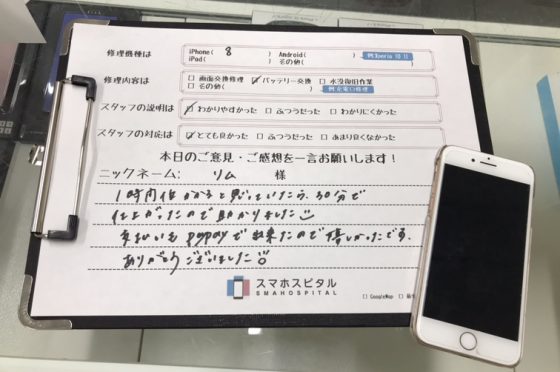 修理機種は iPhone( 8 ) Android( ) 例:Xperia 10 II
iPad( ) その他( )
修理内容は □ 画面交換修理 ☑ バッテリー交換 □ 水没復旧作業
□ その他( ) 例:充電口修理
スタッフの説明は ☑ わかりやすかった □ ふつうだった □ わかりにくかった
スタッフの対応は ☑ とても良かった □ ふつうだった □ あまり良くなかった
本日のご意見・ご感想を一言お願いします!
ニックネーム: リム 様
1時間位かかると思っていたら、30分で
仕上がったので助かりました
支払いも PayPayで出来たので嬉しかったです。
ありがとうございました
スマホスピタル
SMAHOSPITAL
□ GoogleMap □